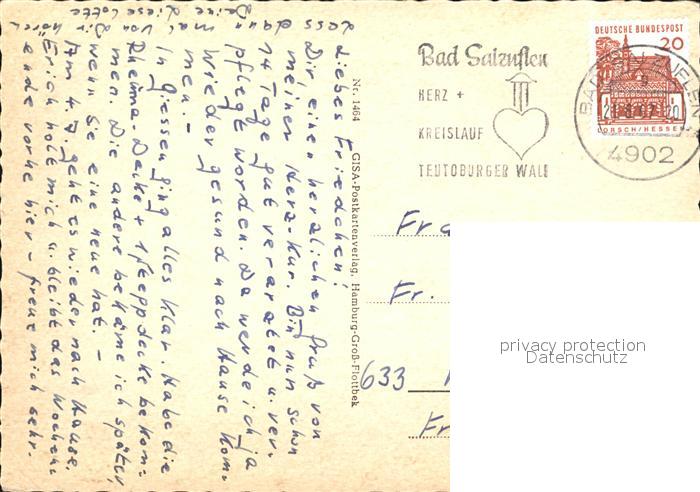 Liebes Friedchen!
Dir einen herzlichen Gruß von
meiner Herz-Kur. Bin nun schon
14 Tage gut verarztet u. ver-
pflegt worden. Da werde ich ja
wieder gesund nach Hause kom-
men. -
In Giessen ging alles klar. Habe die
Rheuma-Decke + 1 Steppdecke bekom-
men. Die andere bekäme ich später,
wenn sie eine neue hat. -
Am 4.7. geht es wieder nach Hause.
Erich holt mich u. bleibt das Wochen-
ende vorher hier - freue mich sehr.
dass dann mal von Dir hören
Deine Lieselotte
Nr. 1464 GISA-Postkartenverlag, Hamburg-Groß-Flottbek
Bad Salzuflen
HERZ +
KREISLAUF
TEUTOBURGER WALD
DEUTSCHE BUNDESPOST
20
LORSCH/HESSEN
BAD SALZUFLEN
4902
Fr.
633
privacy protection
Datenschutz